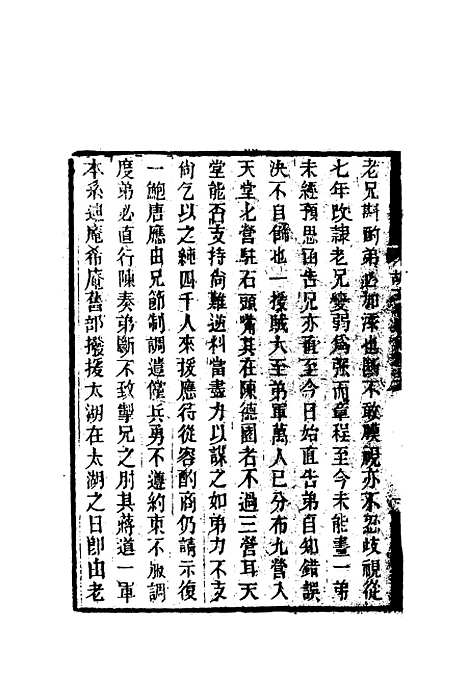 老兄斟酌弟必加深也斷不敢膜視亦不忍歧視從
七年改隸老兄變弱為張而章程至今未能畫一弟
未經預思函告兄亦直至今日始直告弟自知錯誤
決不自飾也一援賊大至弟軍萬人已分布九營入
天堂北營駐石頭嘴其在陳德園者不過三營耳天
堂能否支持尚難逆料當盡力以謀之如弟力不支
尚乞以之純四千人來援應待從容酌商仍請示復
一鮑唐應由兄節制調遣僅兵勇不遵約束不服調
度弟必直行陳奏弟斷不致掣兄之肘其蔣道一軍
本系迪庵希庵舊部撥援太湖在太湖之日卽由老